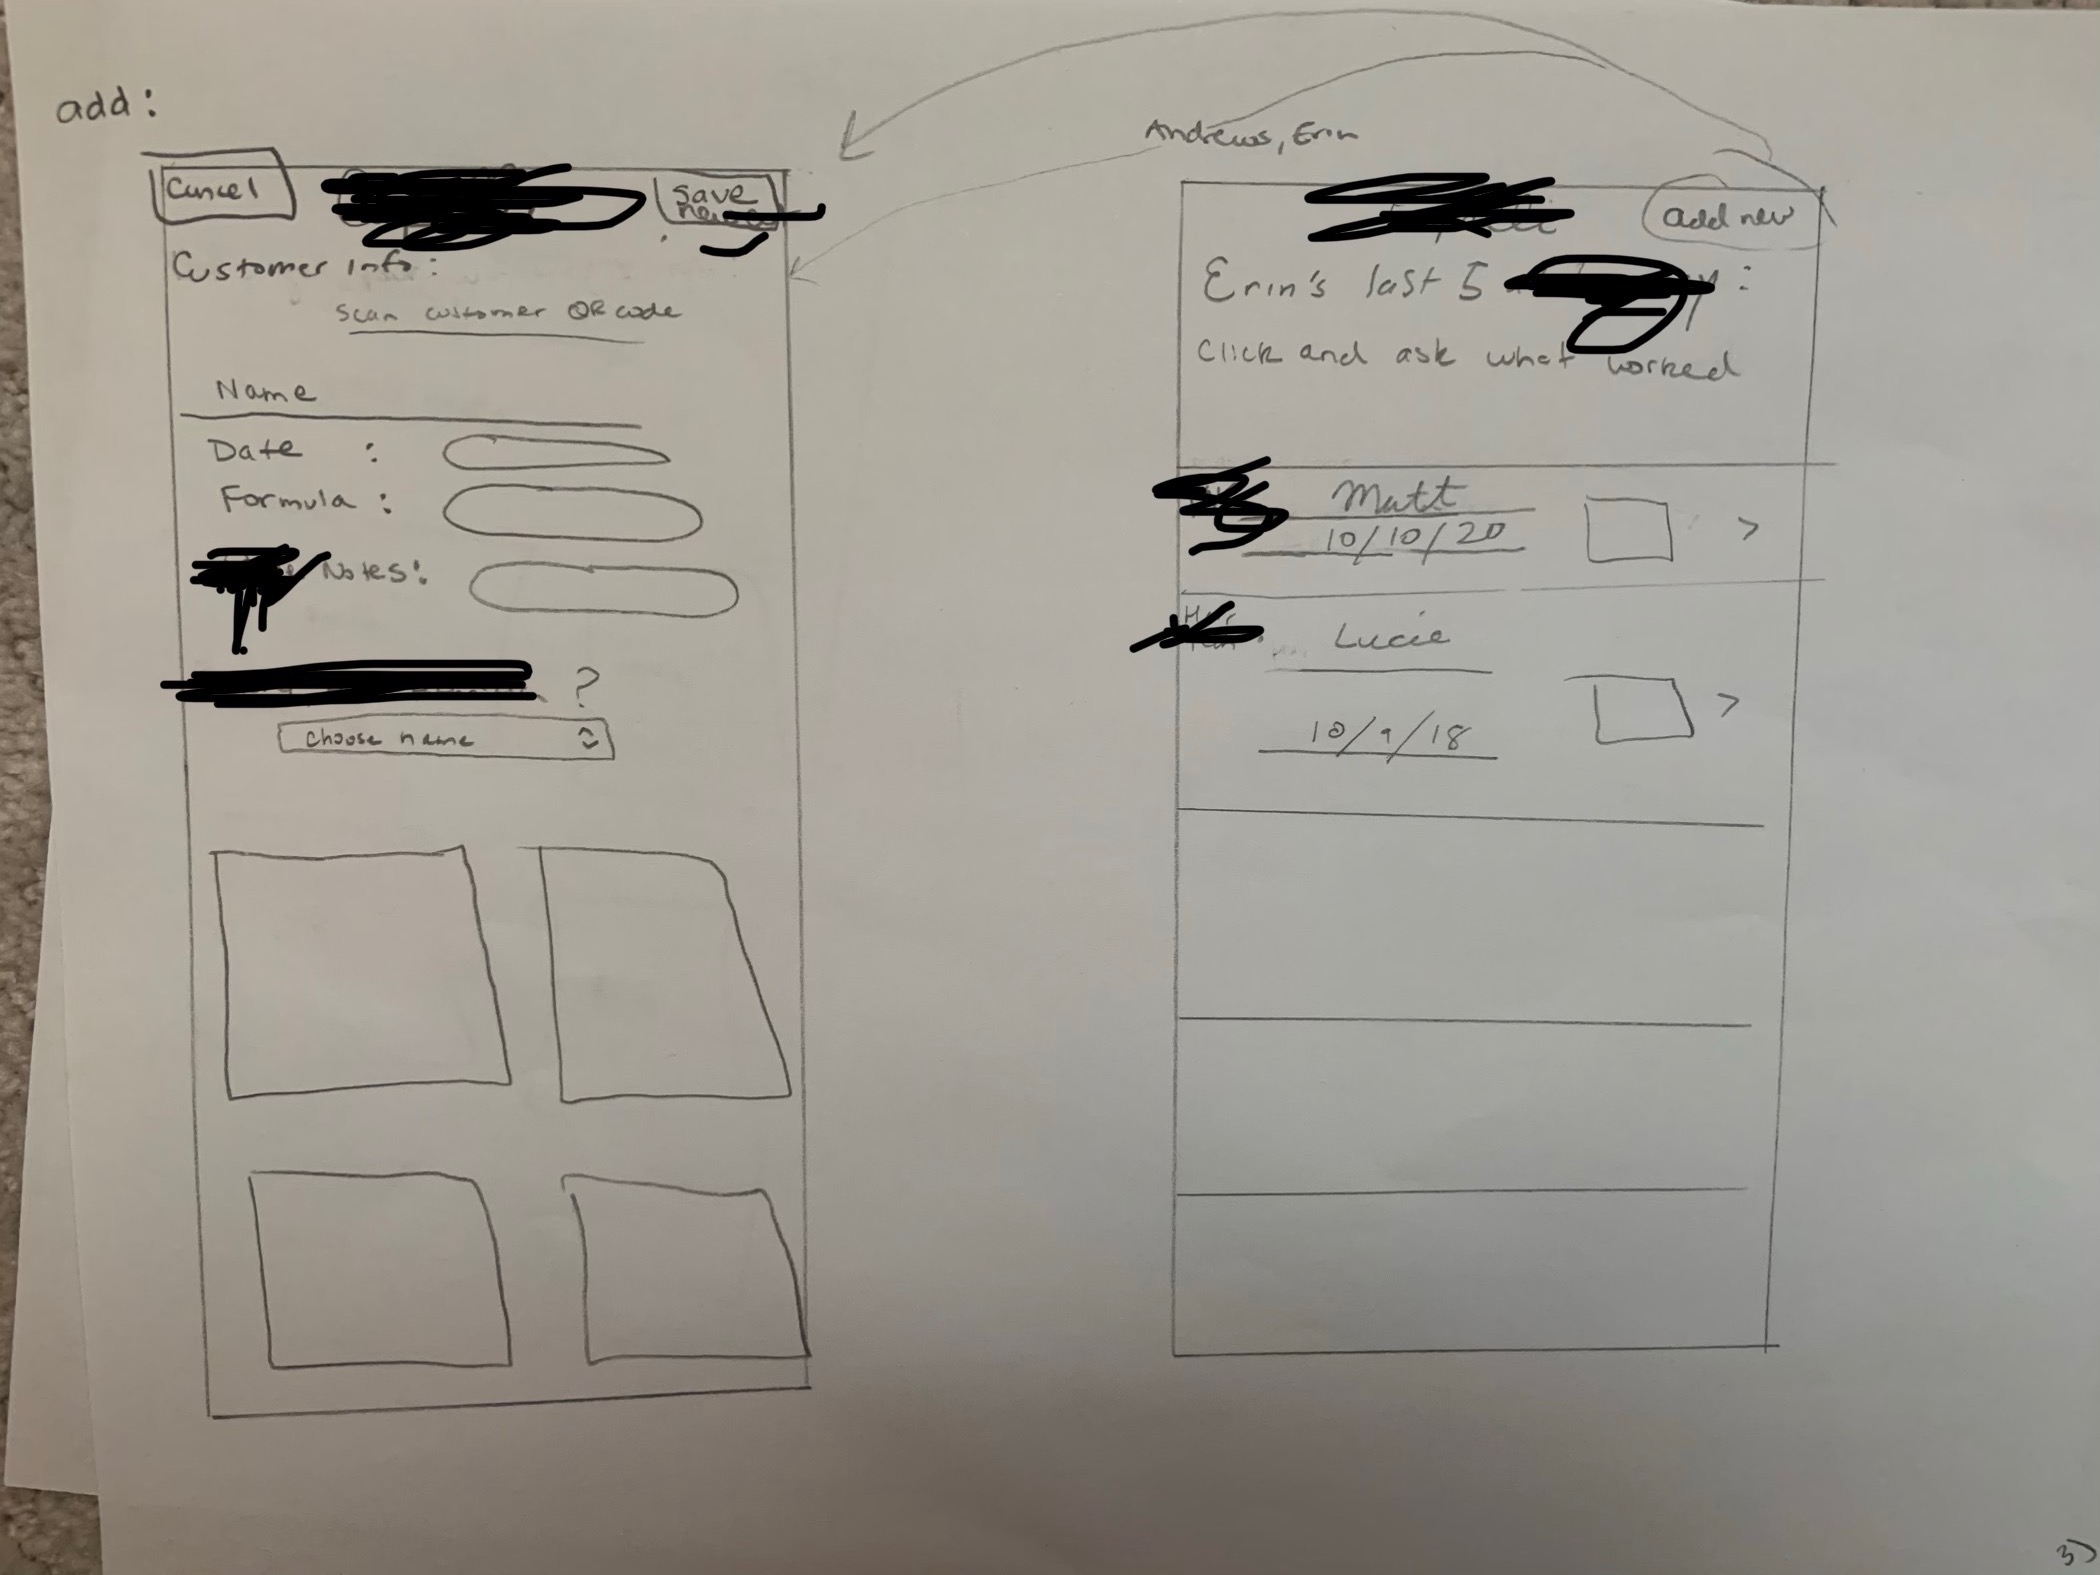 add:
Cancel
save
Customer info:
Scan customer QR code
Name
Date :
Formula :
Notes:
?
choose name
Andrews, Erin
add new
Erin's last 5 :
Click and ask what worked
Matt
10/10/20
>
Lucie
>
10/9/18
3)